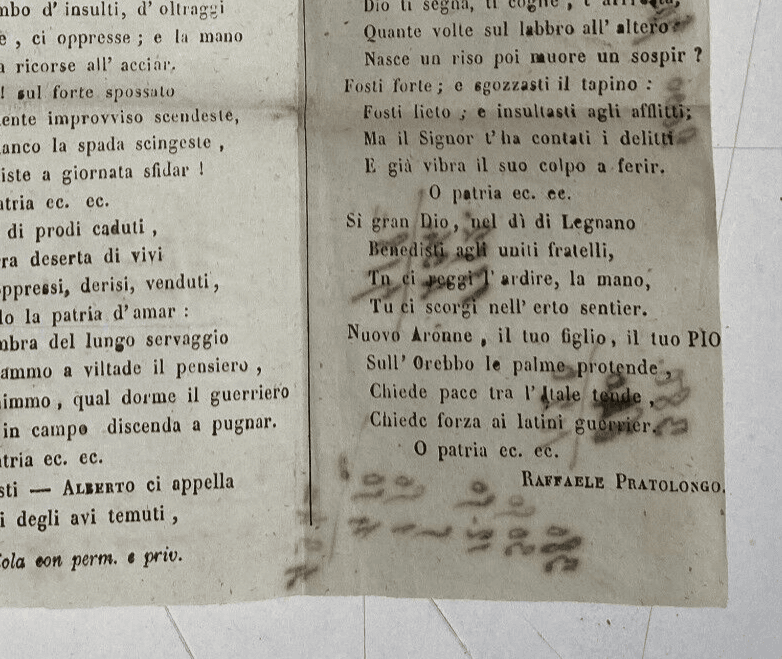 mbo d' insulti, d' oltraggi
e , ci oppresse ; e la mano
a ricorse all' acciar.
! sul forte spossato
ente improvviso scendeste,
anco la spada scingeste ,
iste a giornata sfidar !
atria ec. ec.
di prodi caduti ,
ra deserta di vivi
ppressi, derisi, venduti,
lo la patria d' amar :
mbra del lungo servaggio
ammo a viltade il pensiero ,
nimmo , qual dorme il guerriero
in campo discenda a pugnar.
atria ec. ec.
sti — ALBERTO ci appella
i degli avi temuti ,
ola con perm. e priv.
Dio ti segna, ti coglie , t' arresta,
Quante volte sul labbro all' altero
Nasce un riso poi muore un sospir ?
Fosti forte ; e sgozzasti il tapino :
Fosti lieto ; e insultasti agli afflitti;
Ma il Signor t' ha contati i delitti
E già vibra il suo colpo a ferir.
O patria ec. ec.
Sì gran Dio, nel dì di Legnano
Benedisti agli uniti fratelli,
Tu ci reggi l' ardire, la mano,
Tu ci scorgi nell' erto sentier.
Nuovo Aronne , il tuo figlio, il tuo PIO
Sull' Orebbo le palme protende ,
Chiede pace tra l' Itale tende ,
Chiede forza ai latini guerrier.
O patria ec. ec.
RAFFAELE PRATOLONGO.